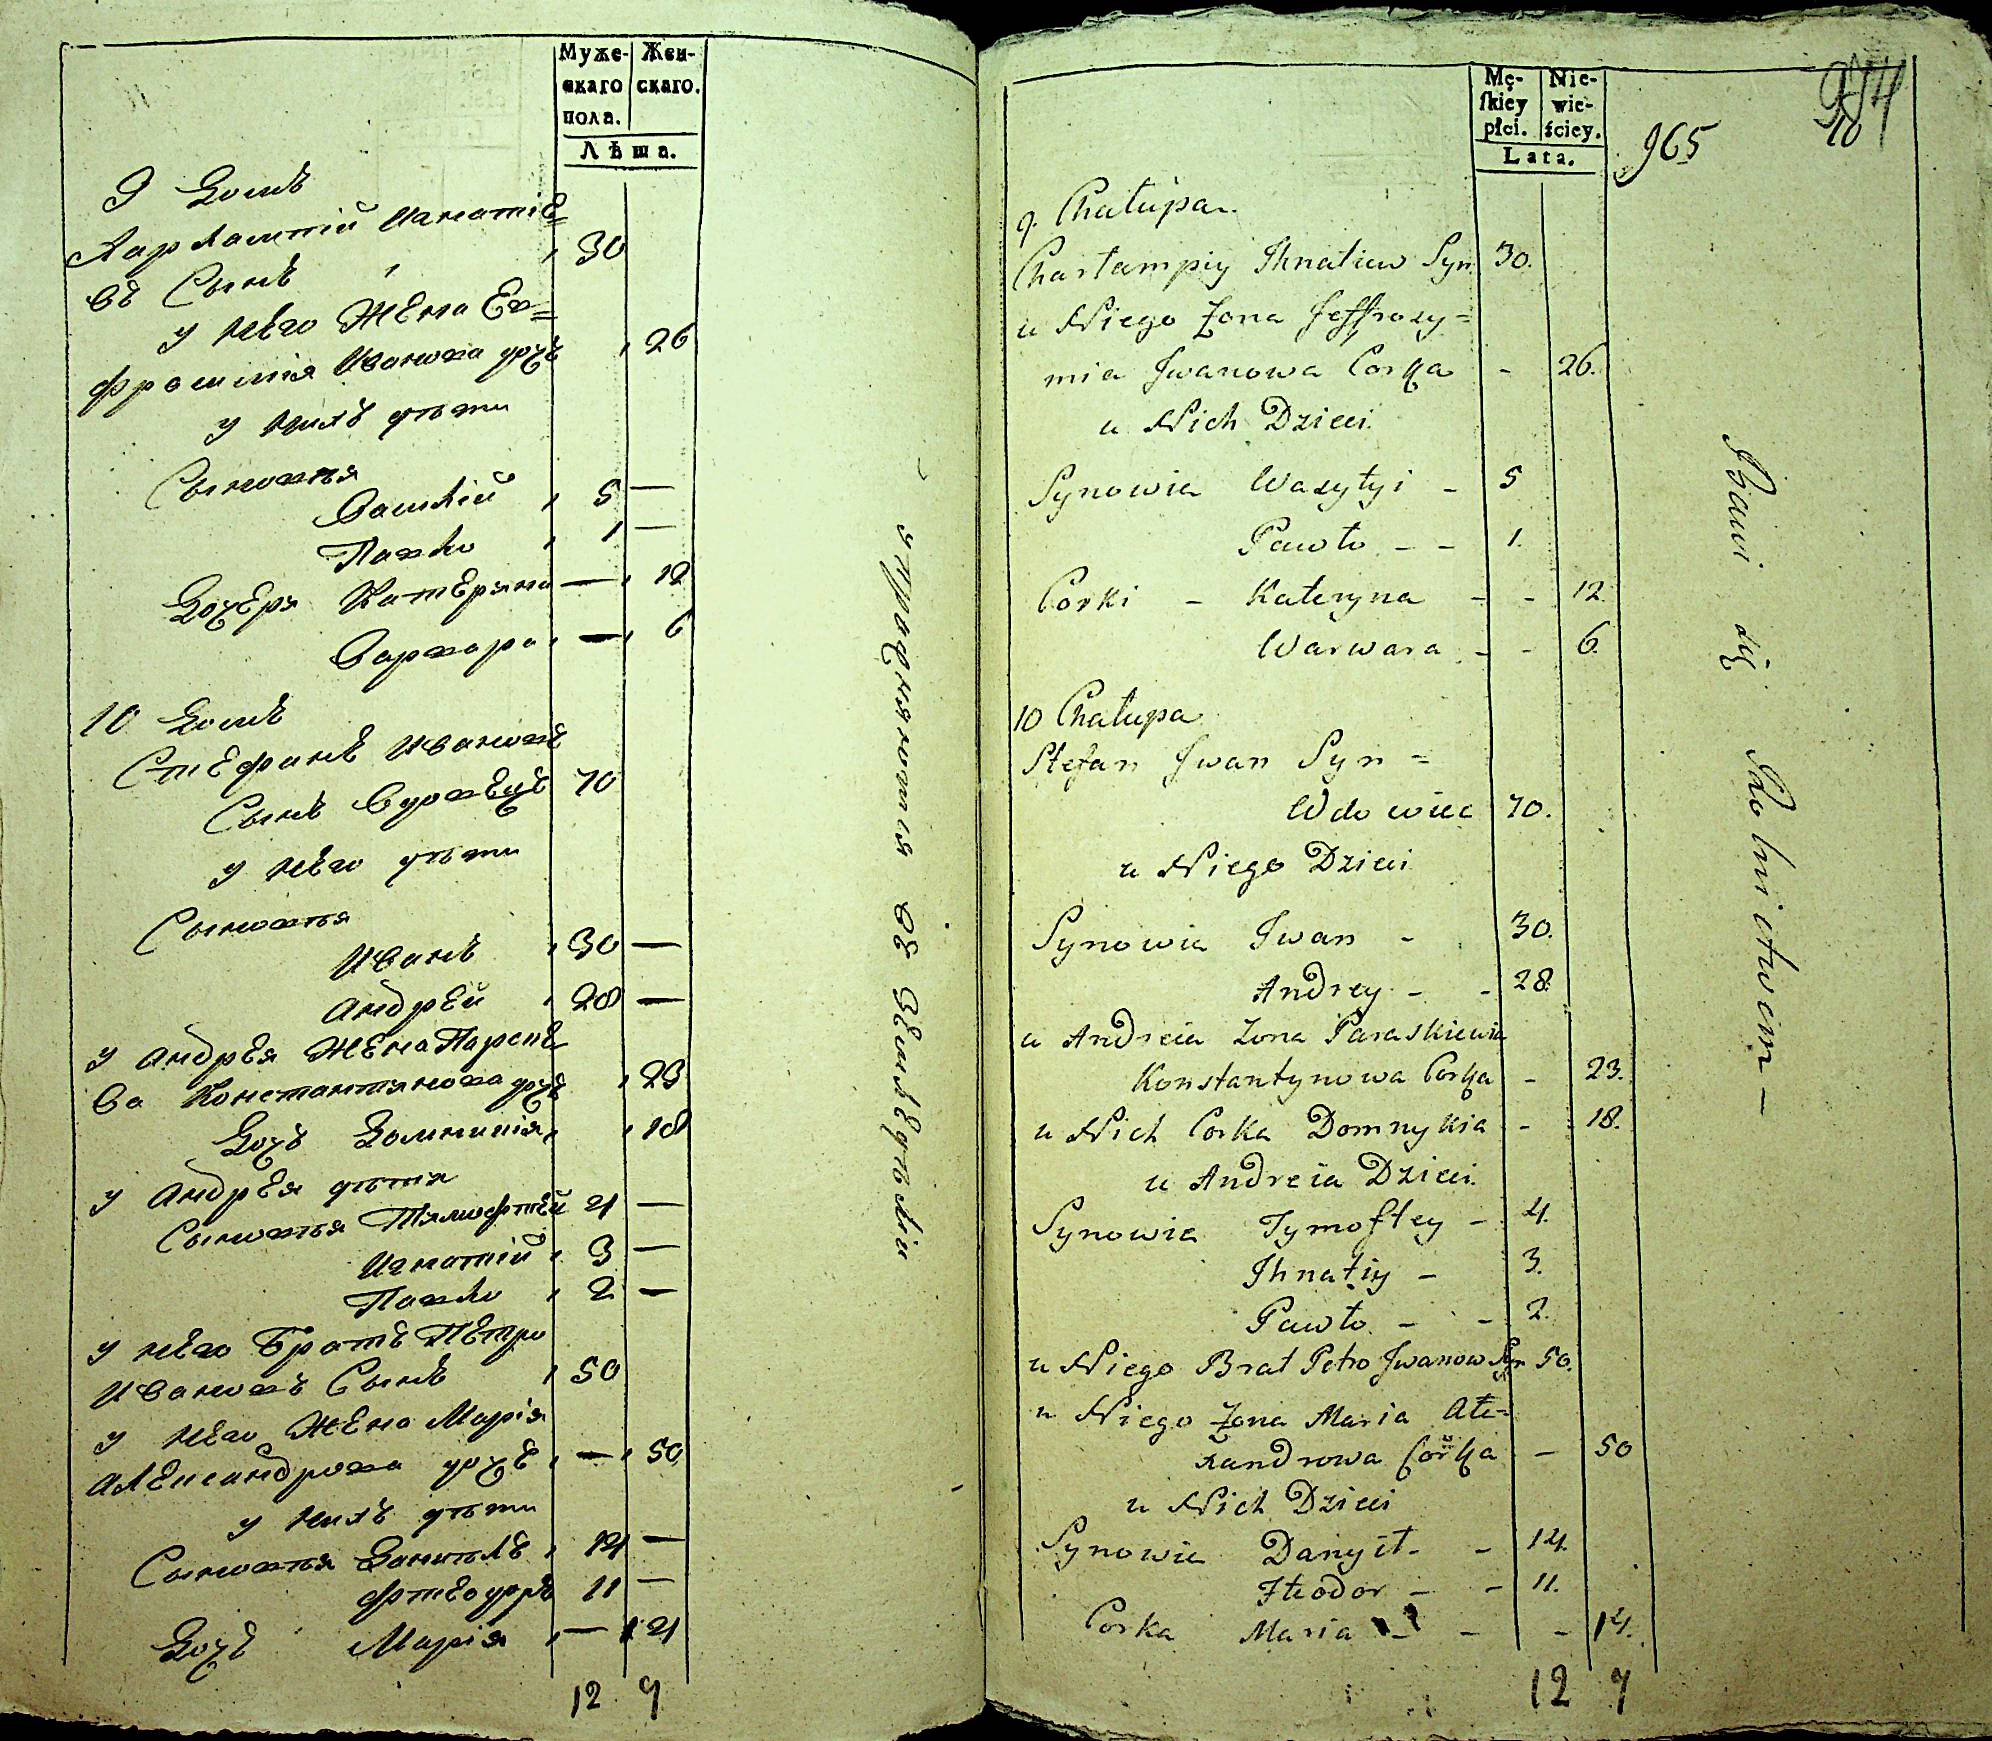 Муже-
скаго
пола.
Жен-
скаго.
Лѣта.
9 Домъ
Харлампій Игнатіе=
въ Сынъ 30
у Него Жена Ев=
фросинія Иванова дочь 26
у Нихъ дѣти
Сыновья
Василій 5 —
Павло 1 —
Дочеря Катеряна — 12
Варвара — 6
10 Домъ
Стефанъ Ивановъ
Сынъ Вдовецъ 70
у Него дѣти
Сыновья
Иванъ 30 —
Андрей 28 —
у Андрея Жена Парске
ва Константянова дочь 23
Дочь Домникія 18
у Андрея дѣтя
Сыновья Тямофтей 4 —
Игнатій 3 —
Павло 2 —
у Него Братъ Петро
Ивановъ Сынъ 50
у Него Жена Марія
Александрова дочь — 50
у Нихъ дѣти
Сыновья Данилъ 14 —
Фтеодоръ 11 —
Дочь Марія — 14
12 7
упражняются въ земледѣліи
Mę-
skiey
płci.
Nie-
wie-
ściey.
Lata.
965
974
10
9. Chałupa.
Charłampiy Ihnatiew Syn 30.
u Niego Żona Jeffrozy=
mia Jwanowa Corka - 26.
u Nich Dzieci.
Synowie Wasyłyi - 5
Pawło - - 1.
Corki - Kateryna - - 12.
Warwara - - 6.
10 Chałupa
Stefan Jwan Syn =
Wdowiec 70.
u Niego Dzieci
Synowie Jwan - 30.
Andrey - - 28.
u Andreia Zona Paraskiewia
Konstantynowa Corka - 23.
u Nich Corka Domnykia - 18.
u Andreia Dzieci.
Synowie Tymoftey - 4.
Ihnatiy - 3.
Pawło - - 2.
u Niego Brat Petro Jwanow Syn 50.
u Niego Żona Maria Ałe=
xandrowa Corka - 50
u Nich Dzieci
Synowie Danyił - - 14.
Fteodor - - 11.
Corka Maria - - - 14.
12 7
Bawi się Rolnictwem -